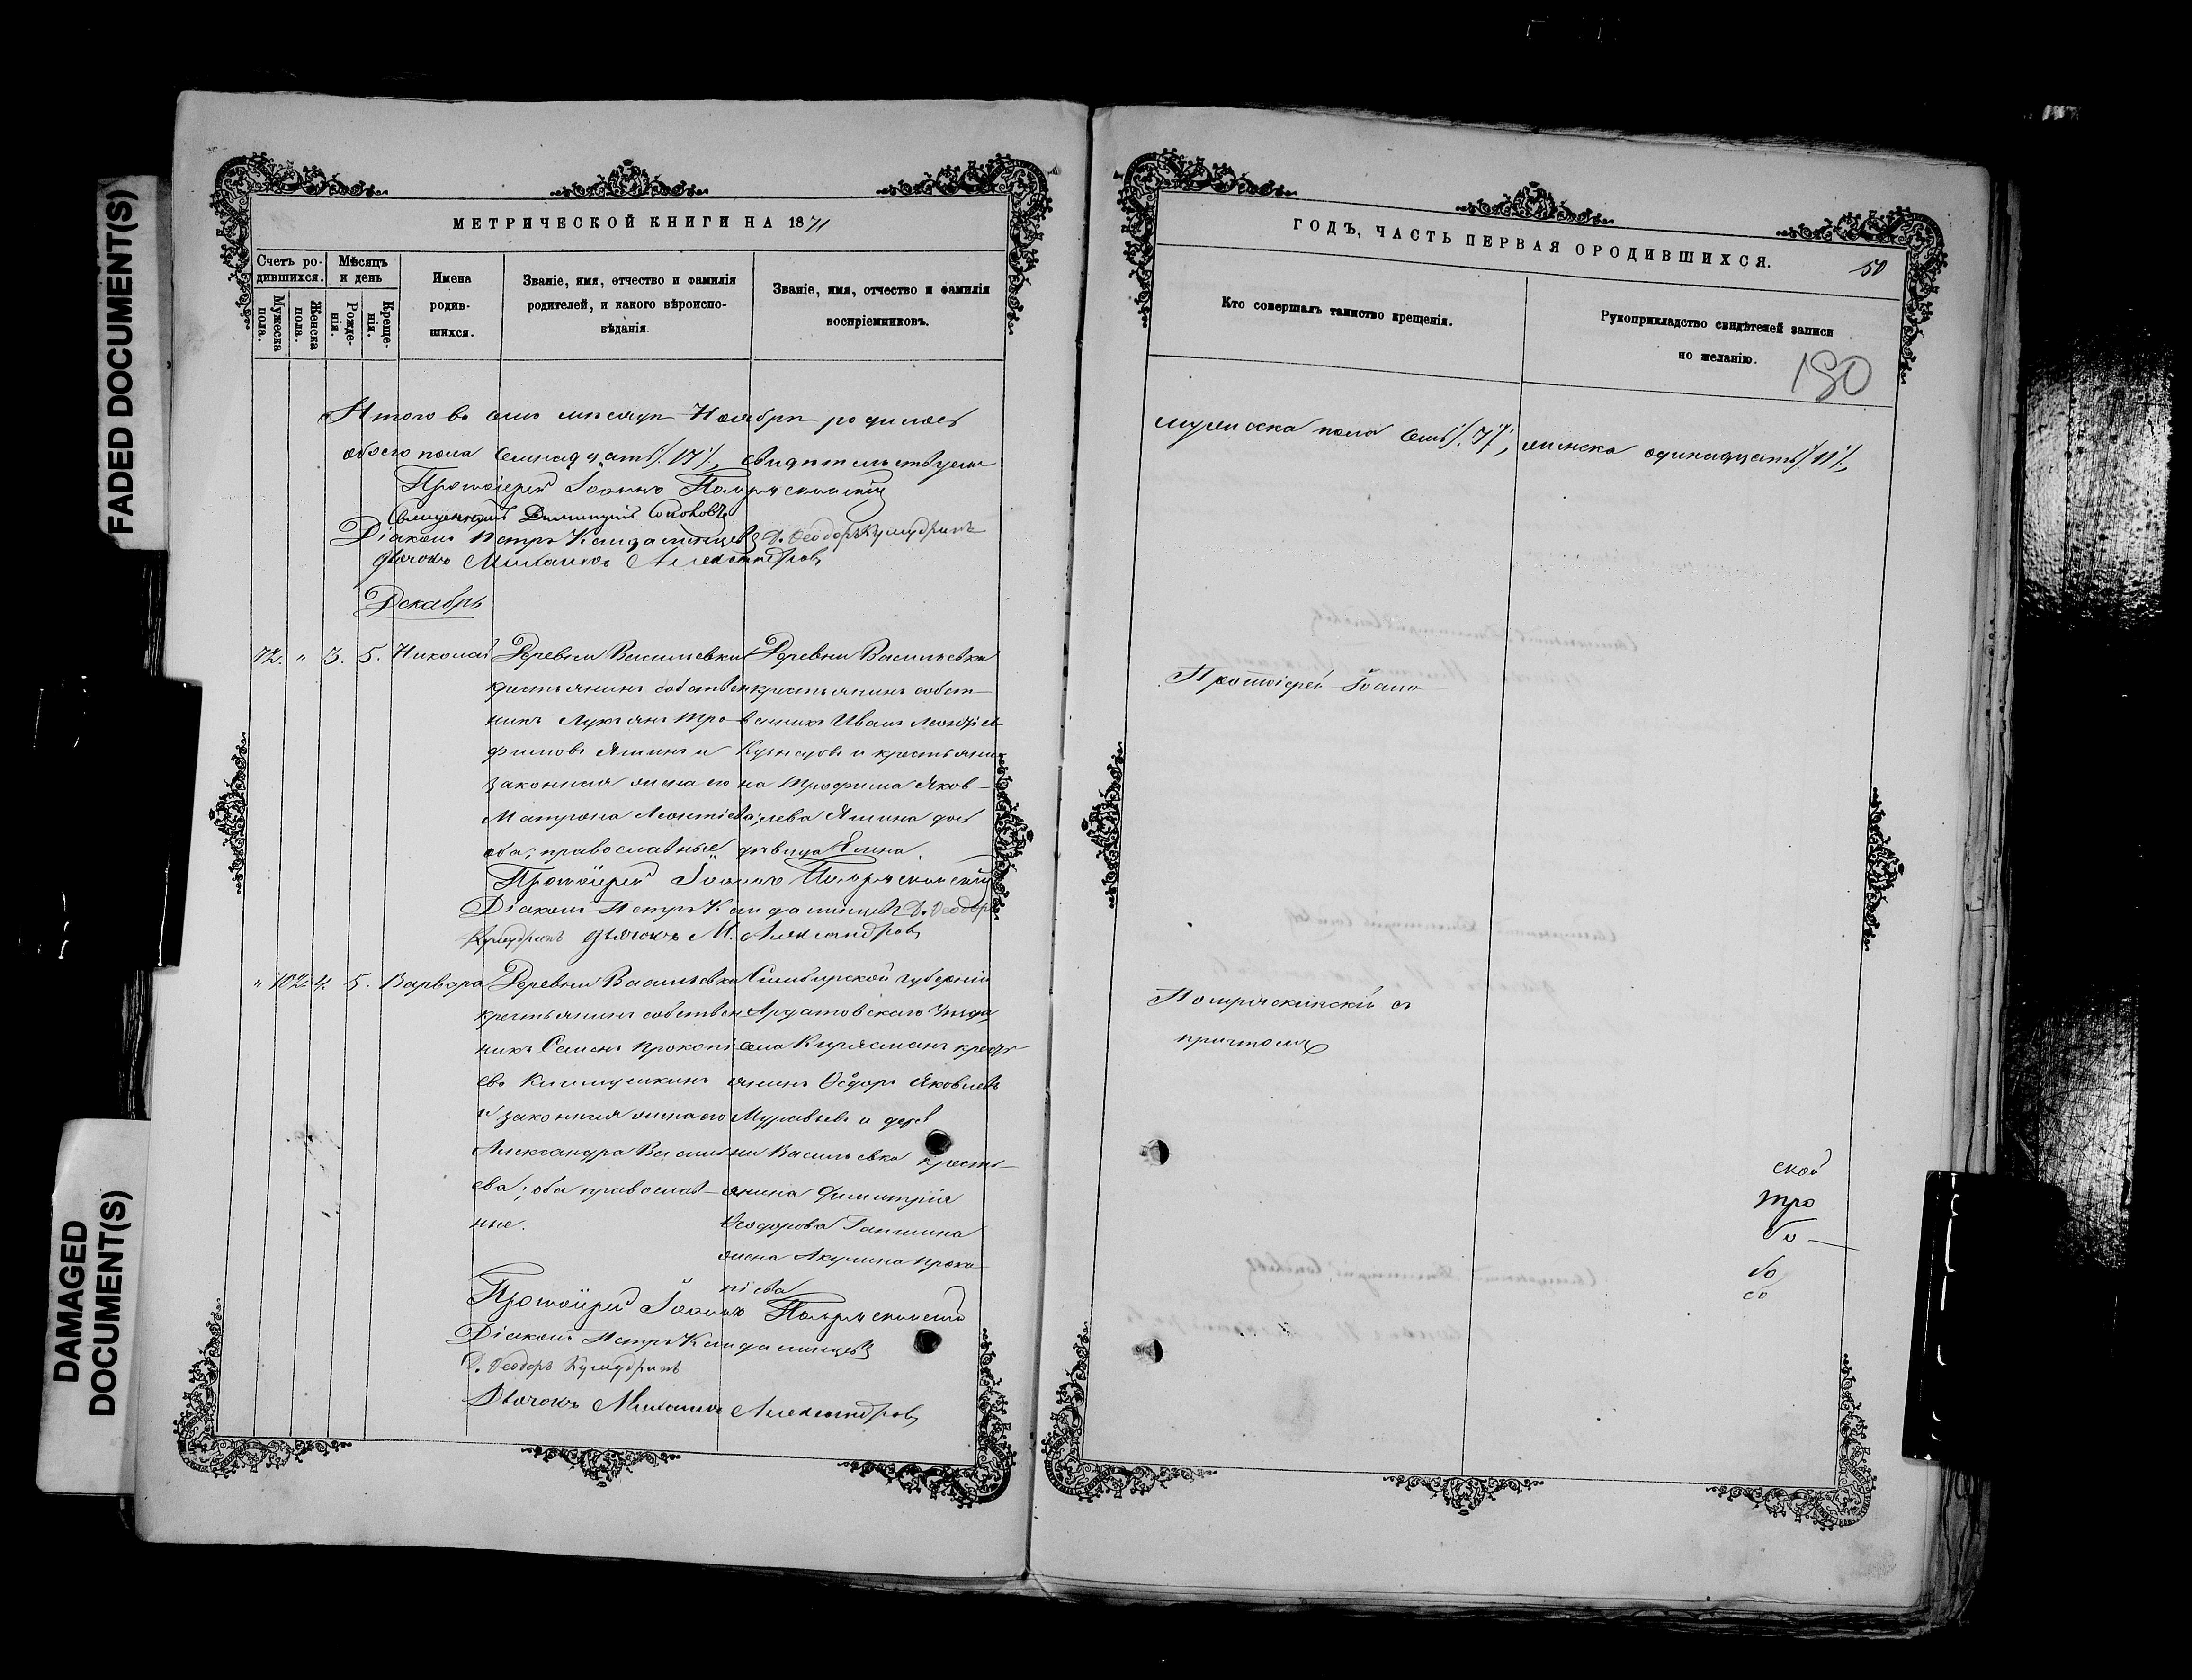 FADED DOCUMENT(S)
DAMAGED
DOCUMENT(S)
МЕТРИЧЕСКОЙ КНИГИ НА 1871
Счетъ ро-
дившихся.
Мужеска
пола.
Женска
пола.
Мѣсяцъ
и день
Рожде-
нія.
Креще-
нія.
Имена
родив-
шихся.
Званіе, имя, отчество и фамилія
родителей, и какого вѣроиспо-
вѣданія.
Званіе, имя, отчество и фамилія
воспріемниковъ.
Итого въ семъ мѣсяцѣ Ноябрѣ родилось
обоего пола
свидѣтельствуемъ
Протоіерей Іоаннъ
Священникъ Димитрій
Діаконъ Петръ
Д. Ѳеодоръ
дьячокъ Михаилъ Александровъ
Декабрь
72. " 3. 5. Николай
Деревни Васильевки
крестьянинъ собствен
никъ Лукьянъ Тро-
фимовъ Яшинъ и
законная жена его
Матрона Леонтіева;
оба православные
Деревни Васильевки
крестьянинъ собст-
венникъ Иванъ Леонтіев
Кузнецовъ и крестьяни
на Трофима Яков-
лева Яшина дочь
дѣвица Елена.
Протоіерей Іоаннъ
Діаконъ Петръ
Д. Ѳеодоръ
дьячокъ М. Александровъ
" 102. 4. 5. Варвара
Деревни Васильевки
крестьянинъ собствен
никъ Семенъ Прокопі
евъ
и законная жена его
Александра Василь
ева; оба православ-
ные.
Симбирской губерніи
Ардатовскаго Уѣзда
села Киржеманъ кресть
янинъ Ѳедоръ Яковлевъ
Муравьевъ и дерев
ни Васильевки кресть-
янина Димитрія
Ѳеодорова
жена Акулина Проко
піева
Протоіерей Іоаннъ
Діаконъ Петръ
Д. Ѳеодоръ
Дьячокъ Михаилъ Александровъ
ГОДЪ, ЧАСТЬ ПЕРВАЯ О РОДИВШИХСЯ.
50
Кто совершалъ таинство крещенія.
Рукоприкладство свидѣтелей записи
по желанію.
180
мужеска пола
женска одинадцать /11/,
Протоіерей Іоаннъ
Помряскинскій съ
причтомъ
ской
тро